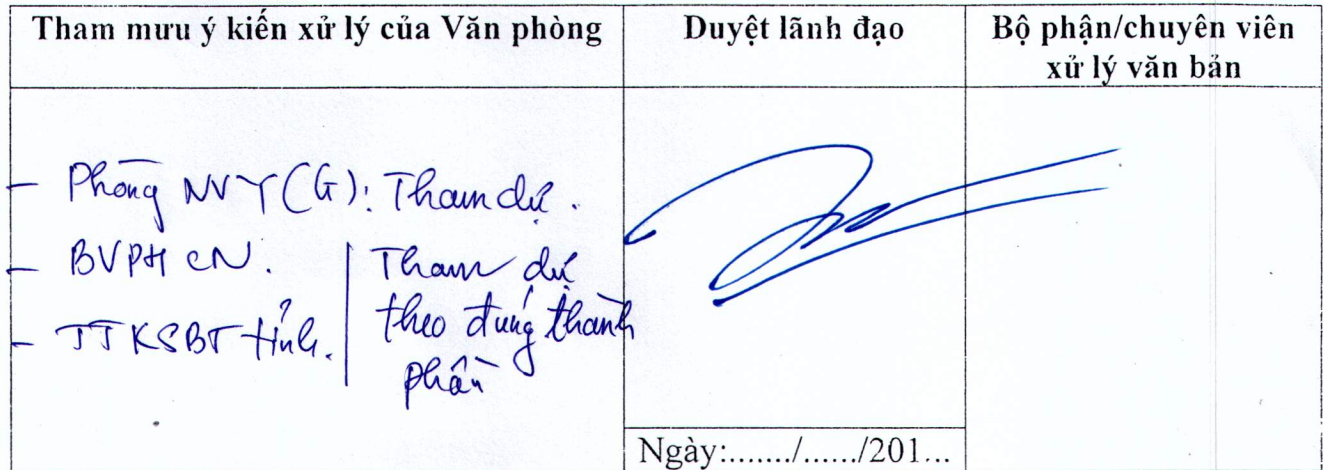 Tham mưu ý kiến xử lý của Văn phòng
Duyệt lãnh đạo
Bộ phận/chuyên viên
xử lý văn bản
- Phòng NVY (G): Tham dự.
- BVPHCN.
- TTKSBT tỉnh.
Tham dự
theo đúng thành
phần
Ngày:......./....../201...